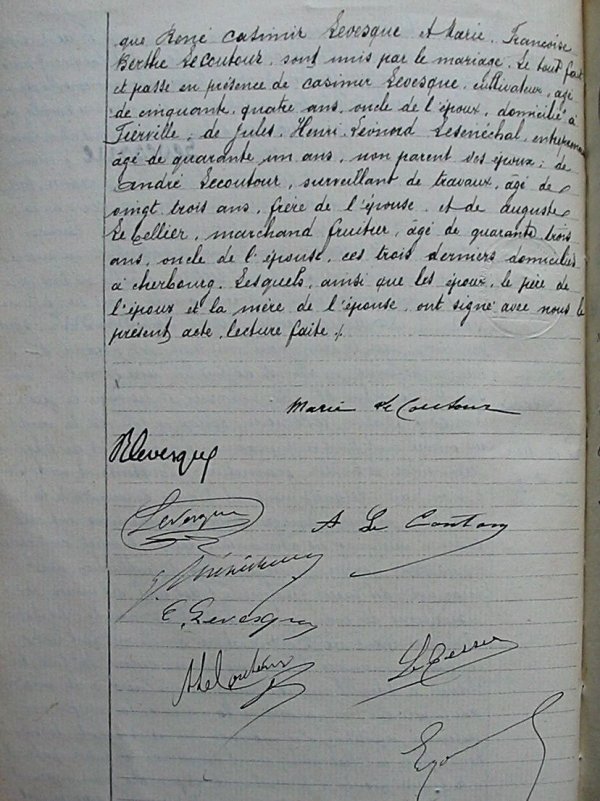 que René Casimir Levesque et Marie, Françoise
Berthe Lecoutour, sont unis par le mariage. Le tout fait
et passé en présence de Casimir Levesque, cultivateur, âgé
de cinquante, quatre ans, oncle de l'époux, domicilié à
Tierville; de Jules, Henri, Léonord Lesenéchal, entrepreneur
âgé de quarante un ans, non parent des époux; de
André Lecoutour, surveillant de travaux, âgé de
vingt trois ans, frère de l'épouse, et de Auguste
Le Tellier, marchand fruitier, âgé de quarante trois
ans, oncle de l'épouse, ces trois derniers domiciliés
à Cherbourg, Lesquels, ainsi que les époux, le père de
l'époux et la mère de l'épouse, ont signé avec nous le
présent acte, lecture faite.
Marie Le Coutour
R Levesque
Levesque
A Le Coutour
C. Levesque